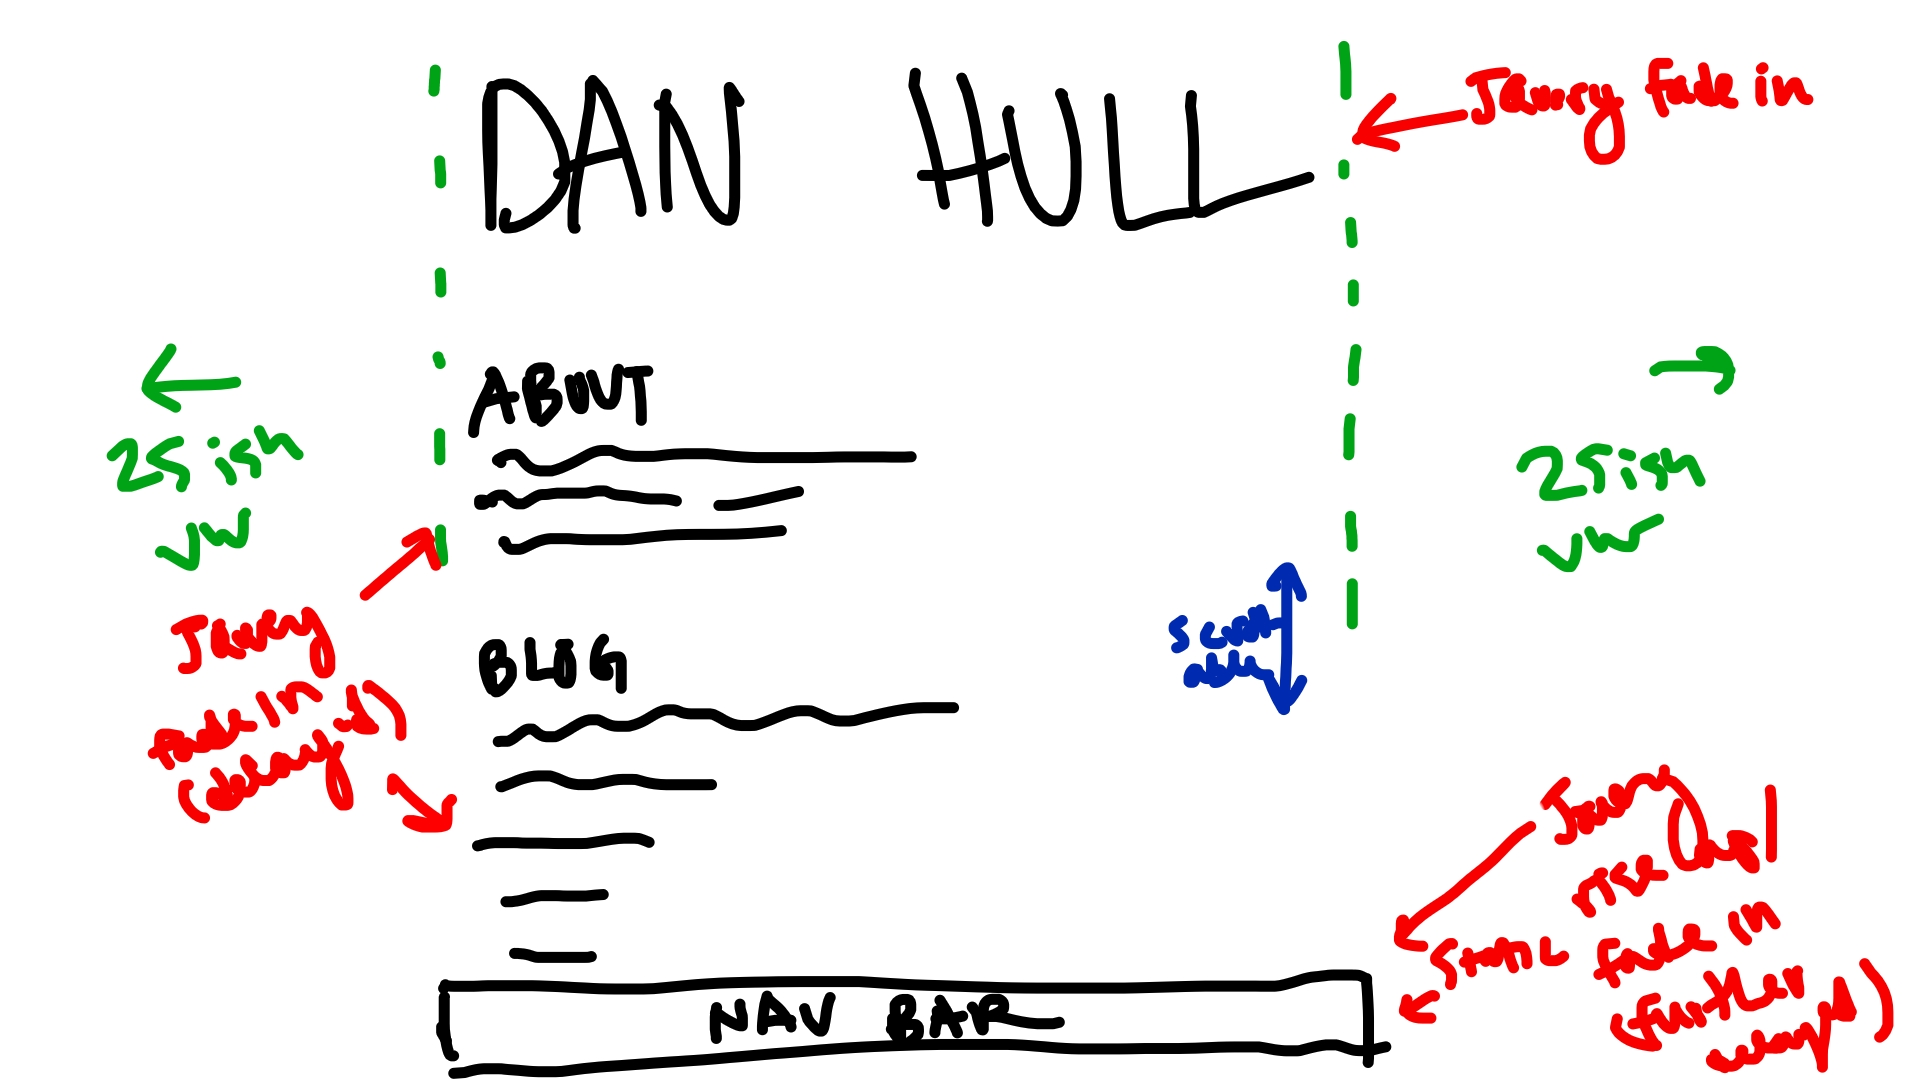 DAN HULL
Jquery fade in
ABOUT
25 ish
vw
25 ish
vw
Jquery
fade in
(delayed)
scroll
able
BLOG
Jquery
rise up/
fade in
(further
delayed)
static
NAV BAR